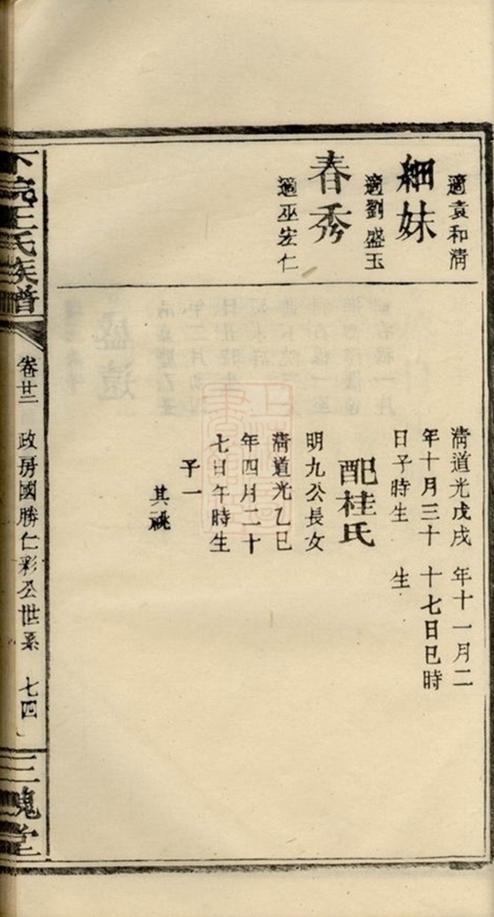 適袁和清
細妹
適劉盛玉
春秀
適巫宏仁
清道光戊戌
年十月三十
日子時生
配桂氏
明九公長女
清道光乙巳
年四月二十
七日午時生
子一
其祧
年十一月二
十七日巳時
生
王氏族譜
政房國勝仁彩公世系
七四
三槐堂